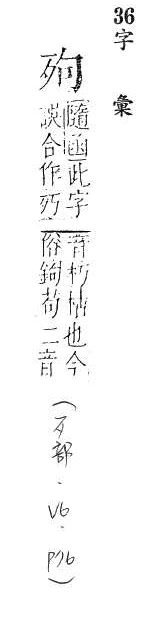 36字彙
隨函此字
誤合作㱙
音朽枯也今
俗鉤苟二音
(歹部．V6．P76)